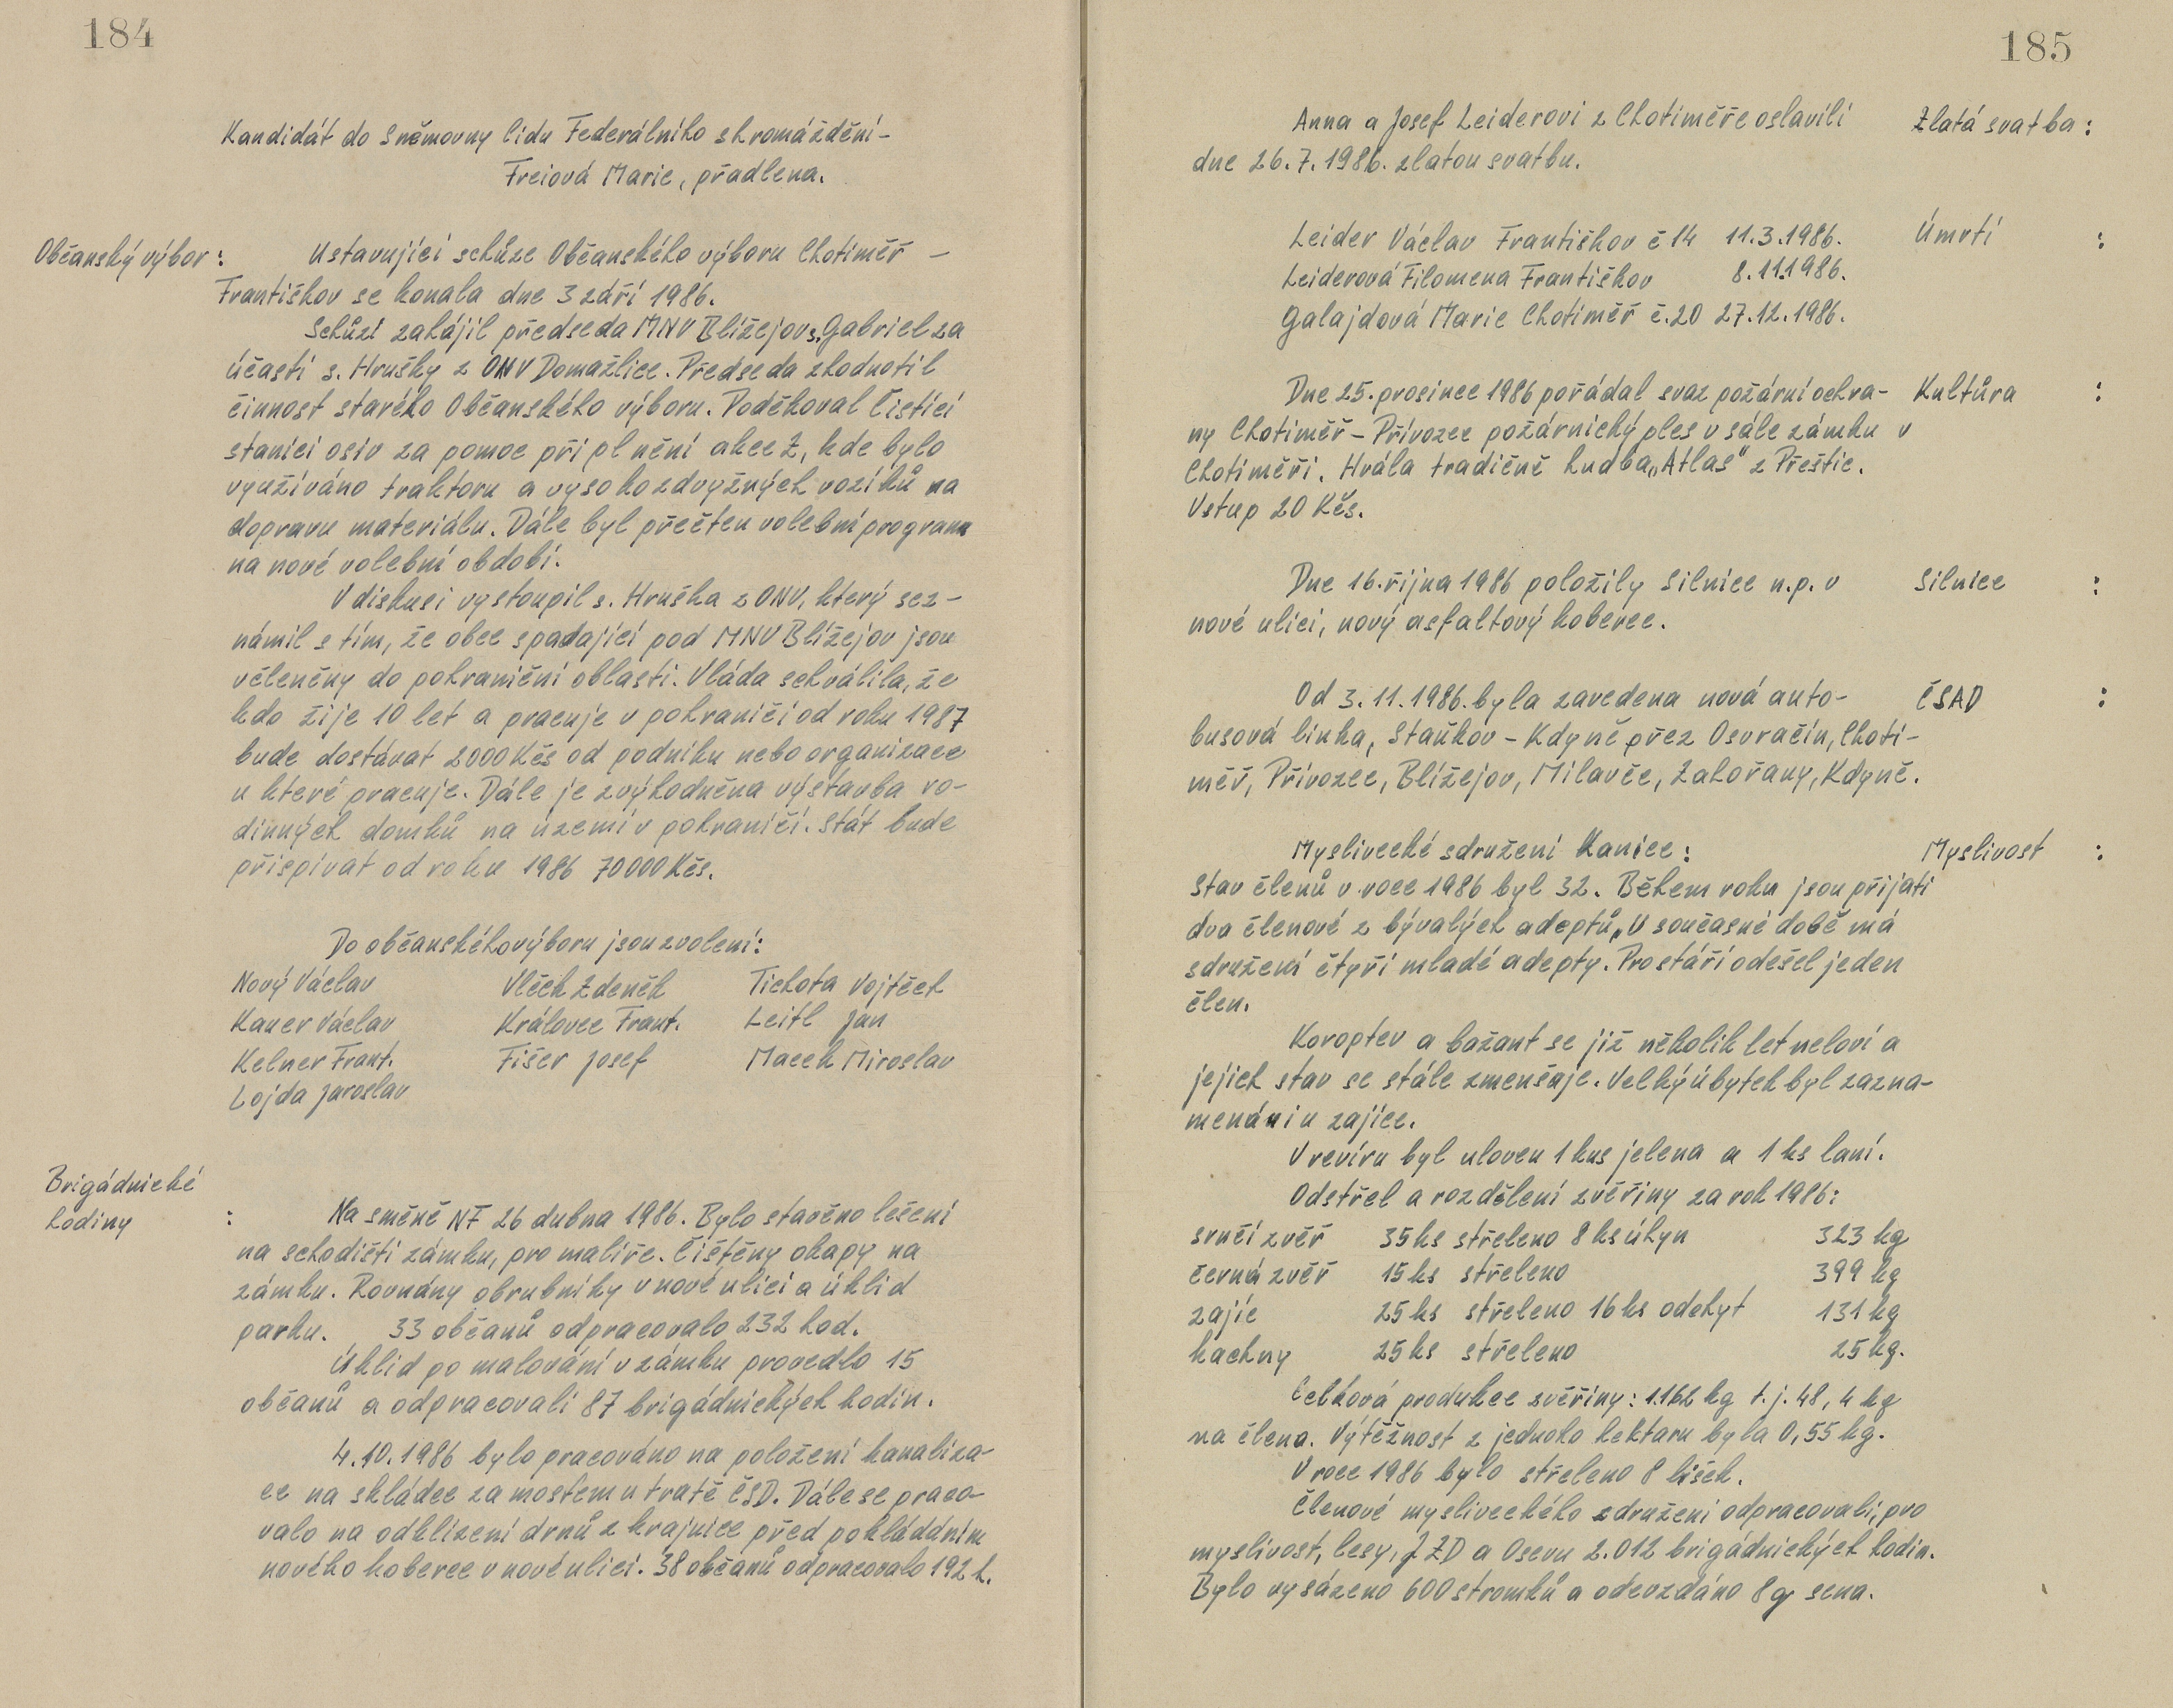 184
Kandidát do Sněmovny lidu Federálního shromáždění-
Freiová Marie, přadlena.
Občanský výbor: Ustavující schůze Občanského výboru Chotiměř –
Františkov se konala dne 3 září 1986.
Schůzi zahájil předseda MNV Blížejov s. Gabriel za
účasti s. Hrušky z ONV Domažlice. Předseda zhodnotil
činnost starého Občanského výboru. Poděkoval Čistící
stanici osiv za pomoc při plnění akce Z, kde bylo
využíváno traktoru a vysokozdvyžných vozíků na
dopravu materiálu. Dále byl přečten volební program
na nové volební období.
V diskusi vystoupil s. Hruška z ONV, který sez-
námil s tím, že obce spadající pod MNV Blížejov jsou
včleněny do pohraniční oblasti. Vláda schválila, že
kdo žije 10 let a pracuje v pohraničí od roku 1987
bude dostávat 2000 Kčs od podniku nebo organizace
u které pracuje. Dále je zvýhodněna výstavba ro-
dinných domků na území v pohraničí. Stát bude
přispívat od roku 1986 70000 Kčs.
Do občanského výboru jsou zvolení:
Nový Václav Vlček Zdeněk Tichota Vojtěch
Kauer Václav Královec Frant. Leitl Jan
Kelner Frant. Fišer Josef Macek Miroslav
Lojda Jaroslav
Brigádnické
hodiny : Na směně NF 26 dubna 1986. Bylo stavěno lešení
na schodišti zámku, pro malíře. Čištěny okapy na
zámku. Rovnány obrubníky v nové ulici a úklid
parku. 33 občanů odpracovalo 232 hod.
Úklid po malování v zámku provedlo 15
občanů a odpracovali 87 brigádnických hodin.
4.10.1986 bylo pracováno na položení kanaliza-
ce na skládce za mostem u tratě ČSD. Dále se praco-
valo na odklízení drnů z krajnice před pokládáním
nového koberce v nové ulici. 38 občanů odpracovalo 192 h.
185
Anna a Josef Leiderovi z Chotiměře oslavili Zlatá svatba:
dne 26.7.1986. zlatou svatbu.
Leider Václav Františkov č 14 11.3.1986. Úmrtí :
Leiderová Filomena Františkov 8.11.1986.
Galajdová Marie Chotiměř č.20 27.12.1986.
Dne 25. prosince 1986 pořádal svaz požární ochra- Kultůra :
ny Chotiměř – Přívozec požárnický ples v sále zámku v
Chotiměři. Hrála tradičně hudba „Atlas" z Přeštic.
Vstup 20 Kčs.
Dne 16. října 1986 položily Silnice n.p. v Silnice :
nové ulici, nový asfaltový koberec.
Od 3.11.1986. byla zavedena nová auto- ČSAD :
busová linka, Staňkov – Kdyně přez Osvračín, Choti-
měř, Přívozec, Blížejov, Milavče, Zahořany, Kdyně.
Myslivecké sdružení Kanice: Myslivost :
Stav členů v roce 1986 byl 32. Během roku jsou přijati
dva členové z bývalých adeptů. V současné době má
sdružení čtyři mladé adepty. Pro stáří odešel jeden
člen.
Koroptev a bažant se již několik let neloví a
jejich stav se stále zmenšuje. Velký úbytek byl zazna-
menán i u zajíce.
V revíru byl uloven 1 kus jelena a 1 ks laní.
Odstřel a rozdělení zvěřiny za rok 1986:
srnčí zvěř 35 ks střeleno 8 ks úhyn 323 kg
černá zvěř 15 ks střeleno 399 kg
zajíc 25 ks střeleno 16 ks odchyt 131 kg
kachny 25 ks střeleno 25 kg.
Celková produkce zvěřiny: 1.162 kg t.j. 48,4 kg
na člena. Výtěžnost z jednoho hektaru byla 0,55 kg.
V roce 1986 bylo střeleno 8 lišek.
Členové mysliveckého sdružení odpracovali, pro
myslivost, lesy, JZD a Osevu 2.012 brigádnických hodin.
Bylo vysázeno 600 stromků a odevzdáno 8 q sena.